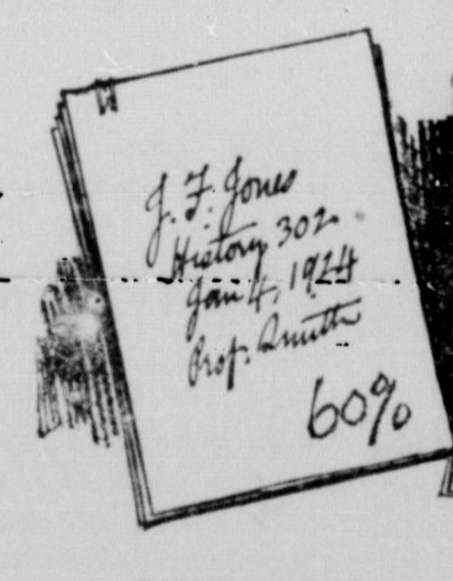 J. F. Jones
History 302
Jan 4, 1924
Prof. Smith
60%